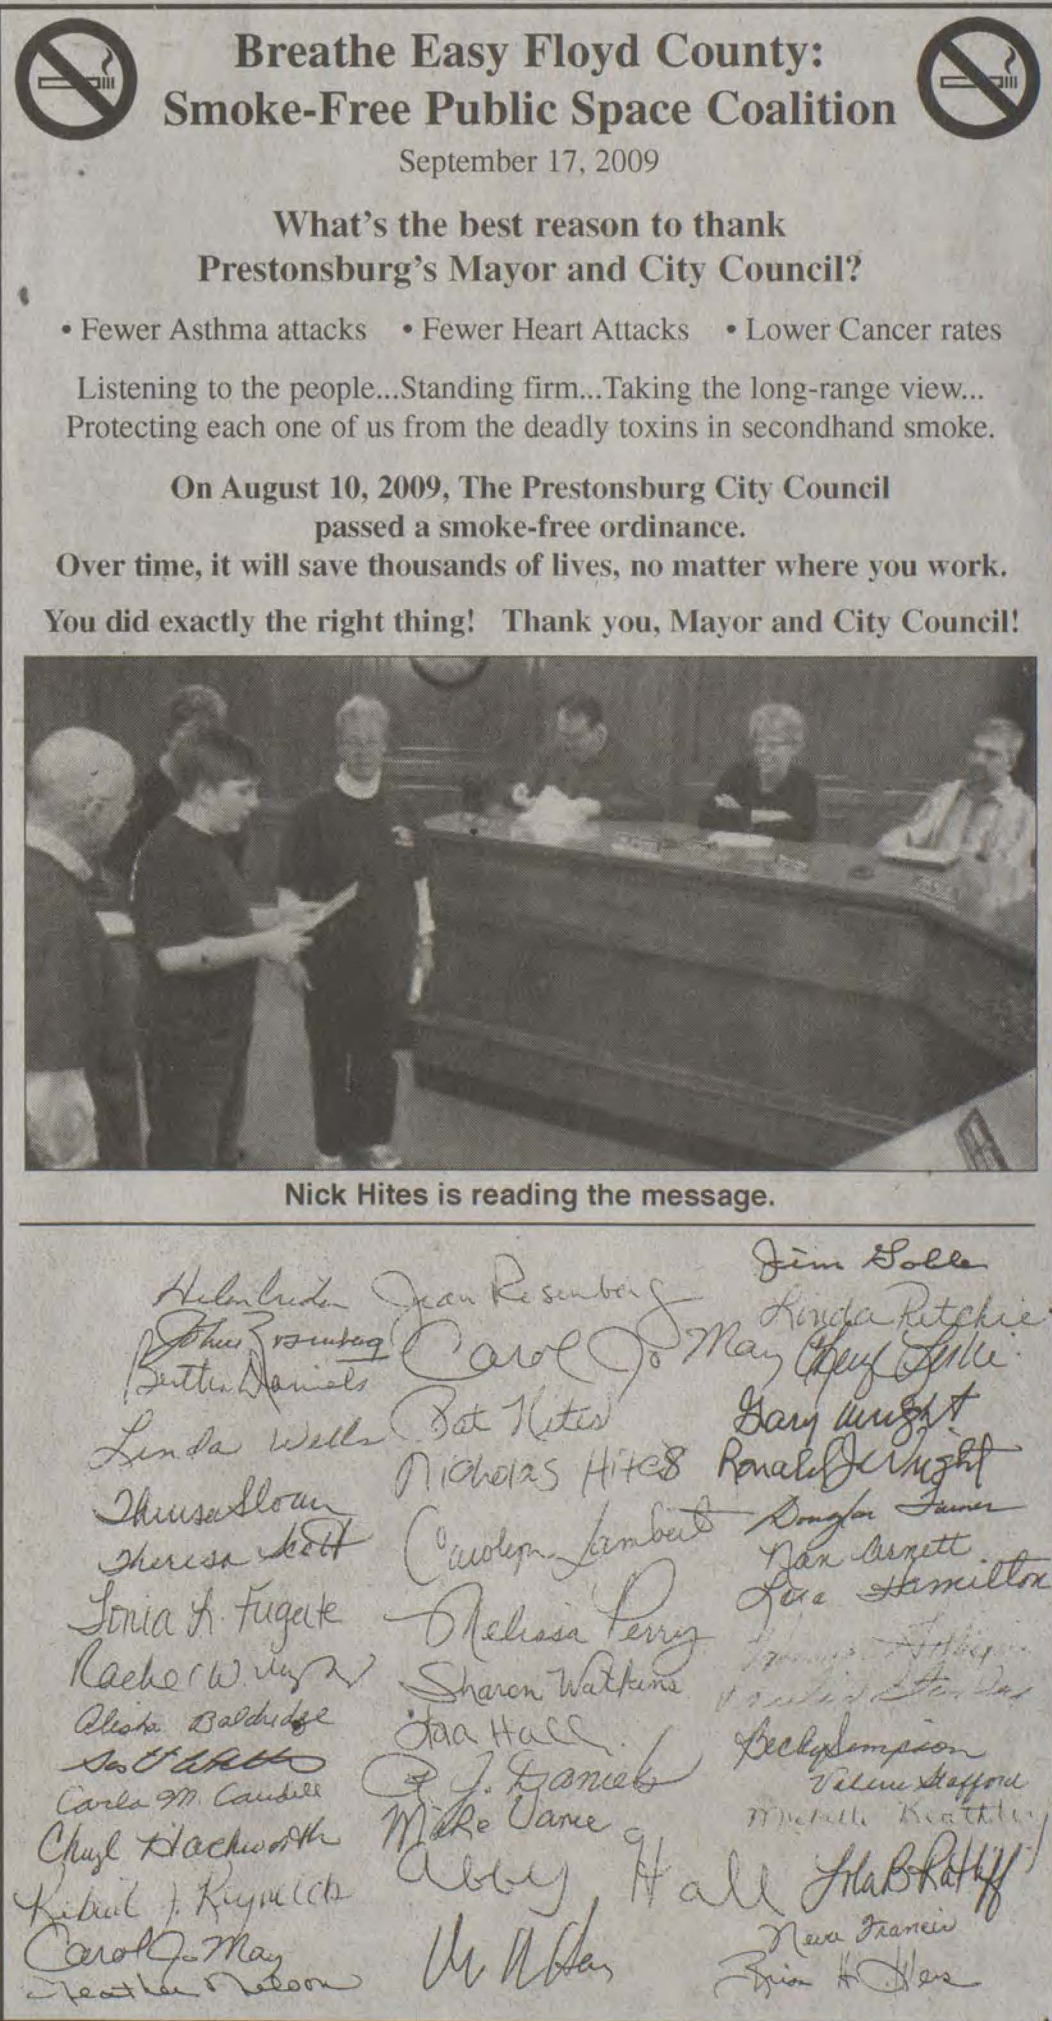 Breathe Easy Floyd County:
Smoke-Free Public Space Coalition
September 17, 2009
What's the best reason to thank
Prestonsburg's Mayor and City Council?
• Fewer Asthma attacks • Fewer Heart Attacks • Lower Cancer rates
Listening to the people...Standing firm...Taking the long-range view...
Protecting each one of us from the deadly toxins in secondhand smoke.
On August 10, 2009, The Prestonsburg City Council
passed a smoke-free ordinance.
Over time, it will save thousands of lives, no matter where you work.
You did exactly the right thing! Thank you, Mayor and City Council!
Nick Hites is reading the message.
Jean Rosenberg
John Rosenberg
Daniels
Linda Wells
Theresa Sloan
Theresa Scott
Tonia R. Fugate
Rachel Wright
Alisha Baldridge
Carla M. Caudill
Cheryl Hackworth
Carol Jo May
Heather Nelson
Carol Jo May
Pat Hites
Nicholas Hites
Carolyn Lambert
Melissa Perry
Sharon Watkins
Hall
J. Daniels
Mike Vance
Abby Hall
Jim Goble
Linda Ritchie
Cheryl Leslie
Gary Wright
Ronald J Wright
Douglas
Nan Arnett
Hamilton
Becky Simpson
Valerie Stafford
Michelle Keathley
Lola B Ratliff
Neva Francis
Brian H